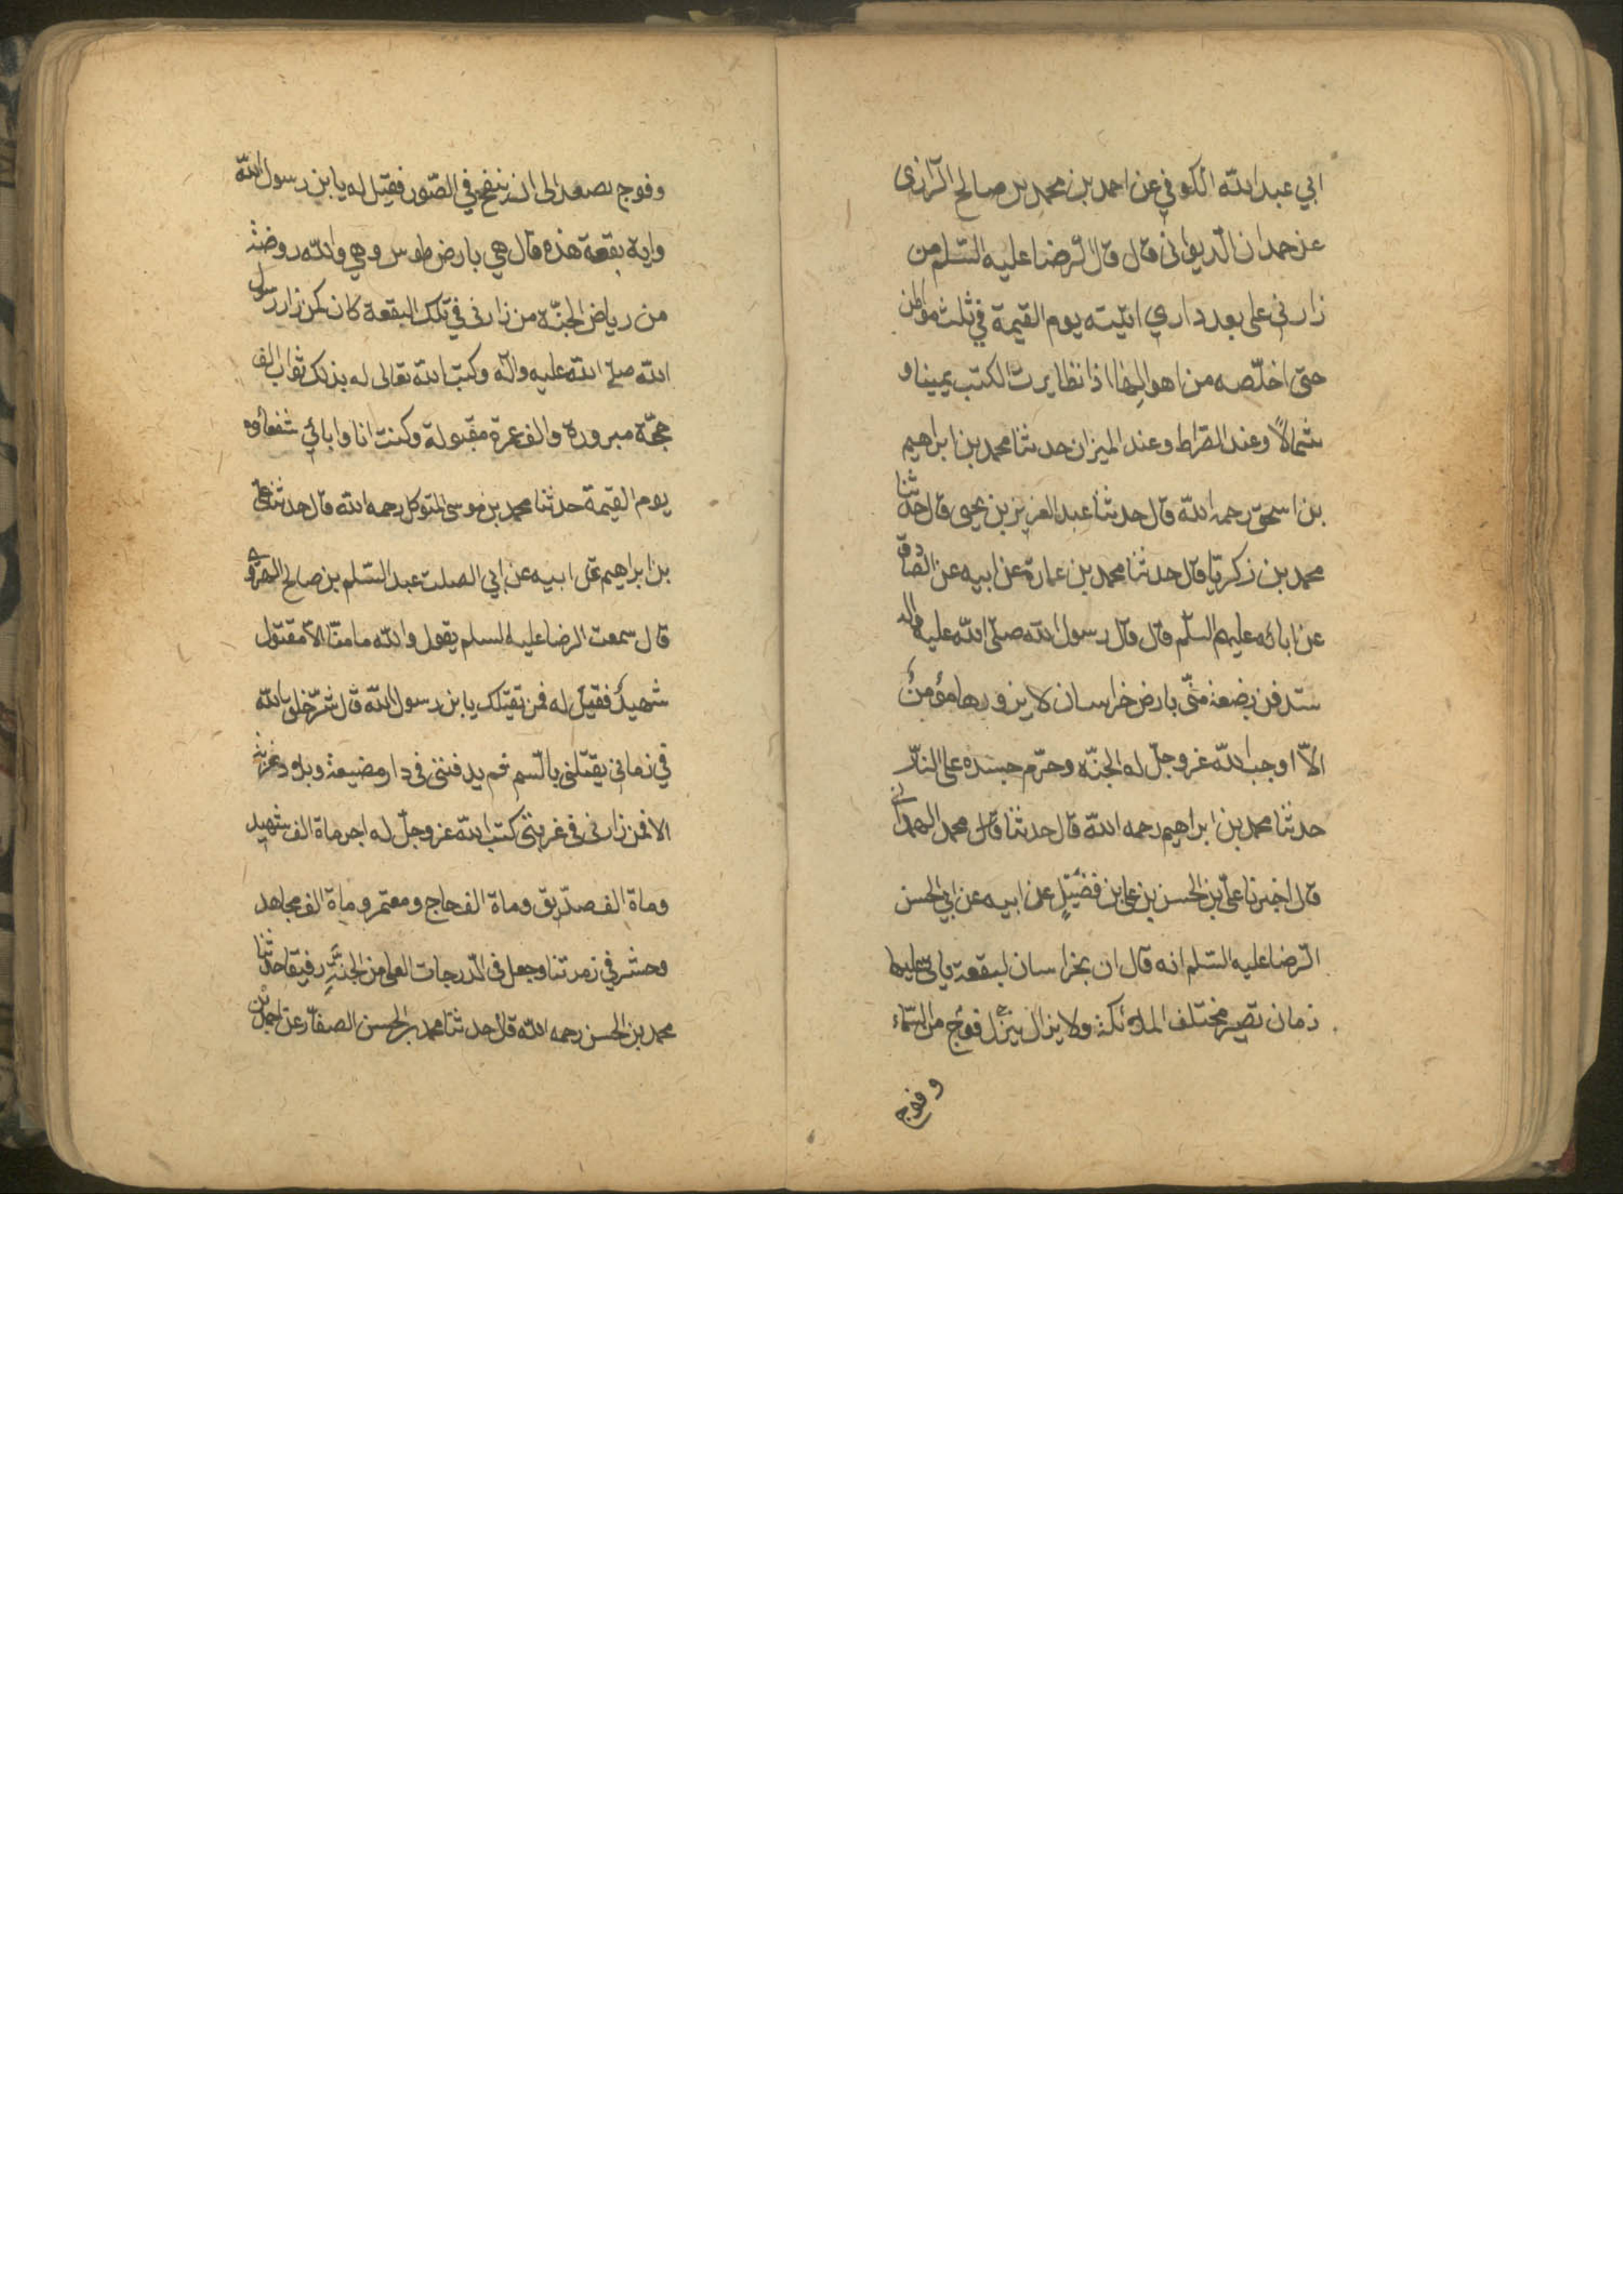 ابي عبد الله الكوفي عن احمد بن محمد بن صالح الرّازى
عن حمدان الّديوانى قال قال الرّضا عليه السّلم من
زارنى على بعد داري اتيته يوم القيمة في ثلث مواطن
حتى اخلّصه من اهوالها اذا تطايرت الكتب يمينا و
شمالاً وعند الصّراط وعند الميزان حدثنا محمد بن ابراهيم
بن اسحق رحمه الله قال حدثنا عبد العزيز بن يحيى قال حدثنا
محمد بن زكريّا قال حدثنا محمد بن عمارة عن ابيه عن الصّادق
عن ابائه عليهم السلّم قال قال رسول الله صلّى الله عليه واله
ستدفن بضعة منّى بارض خراسان لا يزورها مؤمنٌ
الّا اوجب الله عزوجلّ له الجنّه وحرّم جسده على النّار
حدثنا محمد بن ابراهيم رحمه الله قال حدثنا محمد الهمدانى
قال اخبرنا علىّ بن الحسن بن على بن فضيّلٍ عن ابيه عن ابي الحسن
الرّضا عليه السّلم انه قال ان بخراسان لبقعة ياتى عليها
زمان تصير مختلف الملائكة ولا يزال ينزل فوج من السّماء
وفوج
وفوج يصعد الى ان ينفخ في الصّور فقيل له يا بن رسول الله
واية بقعة هذه قال هي بارض طوس وهي والله روضة
من رياض الجنّة من زارنى في تلك البقعة كان كمن زار رسول
الله صلى الله عليه واله وكتب الله تعالى له بذلك ثواب الف
حجّة مبرورة والف عمرة مقبولة وكنت انا وابائي شفعاؤه
يوم القيمة حدثنا محمد بن موسى المتوكل رحمه الله قال حدثنا على
بن ابراهيم عن ابيه عن ابي الصلت عبد السّلم بن صالح الهروي
قال سمعت الرضا عليه السلم يقول والله ما منّا الّا مقتول
شهيدٌ فقيل له فمن يقتلك يا بن رسول الله قال شرّ خلق الله
في زماني يقتلنى بالسّم ثم يدفننى فى دار مضيعة وبلاد غربة
الا فمن زارنى فى غربتى كتب الله عزوجلّ له اجر ماة الف شهيد
وماة الف صدّيق وماة الف حاج ومعتمر وماة الف مجاهد
وحشر في زمرتنا وجعل فى الدّرجات العلى من الجنّةِ رفيقا حدثنا
محمد بن الحسن رحمه الله قال حدثنا محمد بن الحسن الصفّار عن احمد بن